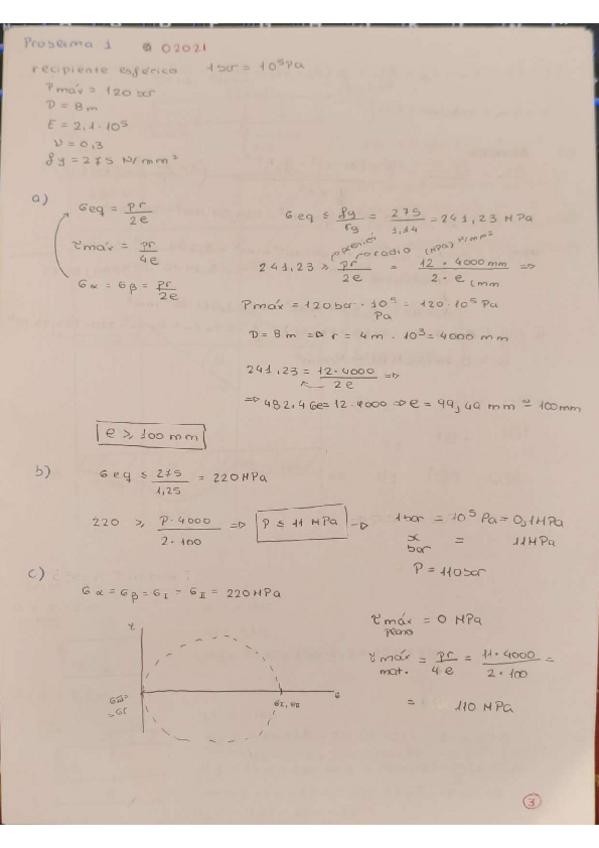 Problema 1 02021
recipiente esférico 1 bar = 10⁵ Pa
Pmáx = 120 bar
D = 8 m
E = 2,1·10⁵
ν = 0,3
fy = 275 N/mm²
a)
σeq = pr/2e
τmáx = pr/4e
σα = σβ = pr/2e
σeq ≤ fy/γg = 275/1,14 = 241,23 MPa
presión por radio (MPa) N/mm²
241,23 ≥ pr/2e = 12 · 4000 mm/2 · e (mm ⇒
Pmáx = 120 bar · 10⁵ Pa = 120·10⁵ Pa
D = 8 m ⇒ r = 4 m · 10³ = 4000 mm
241,23 = 12·4000/2e ⇒
⇒ 482,46e = 12·4000 ⇒ e = 99,49 mm ≈ 100 mm
e ≥ 100 mm
b)
σeq ≤ 275/1,25 = 220 MPa
220 ≥ P·4000/2·100 ⇒ P ≤ 11 MPa →
1 bar = 10⁵ Pa = 0,1 MPa
x bar = 11 MPa
P = 110 bar
c)
σα = σβ = σI = σII = 220 MPa
τmáx plano = 0 MPa
τmáx mat. = pr/4e = 11·4000/2·100 =
= 110 MPa
τ
σ
σI, σII
3